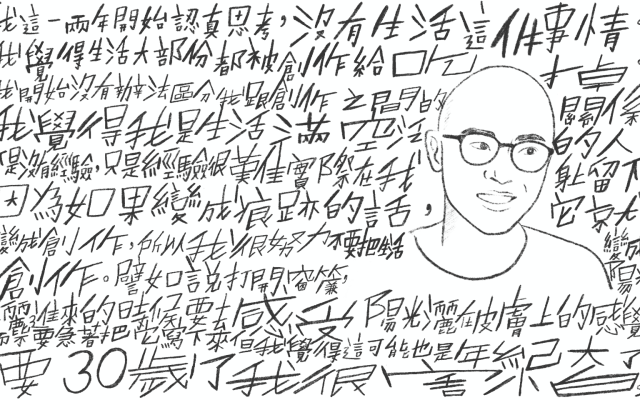 我這一兩年開始認真思考，沒有生活這件事情。
我覺得生活大部份都被創作給吃
我開始沒有辦法區分我跟創作之間的關係
我覺得我是生活滿
的人
是沒有經驗，只是經驗很難 實際在我 留下
因為如果變成痕跡的話，它
變成創作，所以我很努力不要把生活
創作。譬如說打開窗簾，
陽光灑進來的時候要去感受陽光灑在皮膚上的感覺
要急著把它寫下來但我覺得這可能也是年紀大了
要30歲了我很